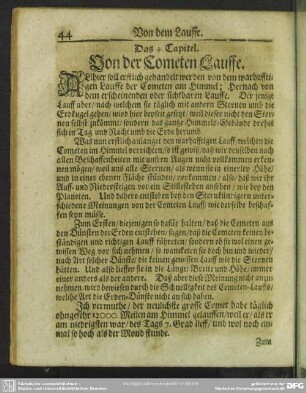 44 Von dem Lauffe.
Das 4 Capitel.
Von der Cometen Lauffe.
Allhier soll erstlich gehandelt werden von dem warhaffti-
gen Lauffe der Cometen am Himmel; Hernach von
dem erscheinenden oder sichtbaren Lauffe. Der jenige
Lauff aber/ nach welchem sie täglich mit andern Sternen umb die
Erdkugel gehen/ wird hier beyseit gesetzt/ weil dieser nicht den Ster-
nen selbst zukömmt/ sondern das gantze Himmels-Gebäude drehet
sich in Tag und Nacht umb die Erde herumb.
Was nun erstlich anlanget den warhafftigen Lauff/ welchen die
Cometen im Himmel verrichten/ ists gewiß/ daß wir denselben nach
allen Beschaffenheiten mit unsern Augen nicht vollkommen erken-
nen mögen/ weil uns alle Sternen/ als wenn sie in einerley Höhe/
und in einer ebenen Fläche stünden/ vorkommen/ also/ daß wir ihr
Auff- und Niedersteigen vor ein Stillestehen ansehen/ wie bey den
Planeten. Und dahero entstehen bey den Sternkündigern unter-
schiedene Meinungen von der Cometen Lauff/ wie derselbe beschaf-
fen seyn müsse.
Zum Ersten/ diejenigen so dafür halten/ daß die Cometen aus
den Dünsten der Erden entstehen/ sagen/ daß die Cometen keinen be-
ständigen und richtigen Lauff führeten/ sondern ob sie wol einen ge-
wissen Weg vor sich nehmen/ so wancketen sie doch hin und wieder/
nach Art solcher Dünste/ die keinen gewissen Lauff wie die Sternen
hätten. Und also lieffen sie in die Länge/ Breite und Höhe/ immer
einer anders als der andere. Das aber diese Meinung nicht an zu
nehmen/ wird bewiesen durch die Schnelligkeit des Cometen-Lauffs/
welche Art die Erden-Dünste nicht an sich haben.
Ich vermuthe/ der neulichste grosse Comet habe täglich
ohngefehr 12000 Meilen am Himmel gelauffen/ weil er/ als er
am niedrigsten war/ des Tags 7. Grad lieff/ und wol noch ein-
mal so hoch als der Mond stunde.
Zum